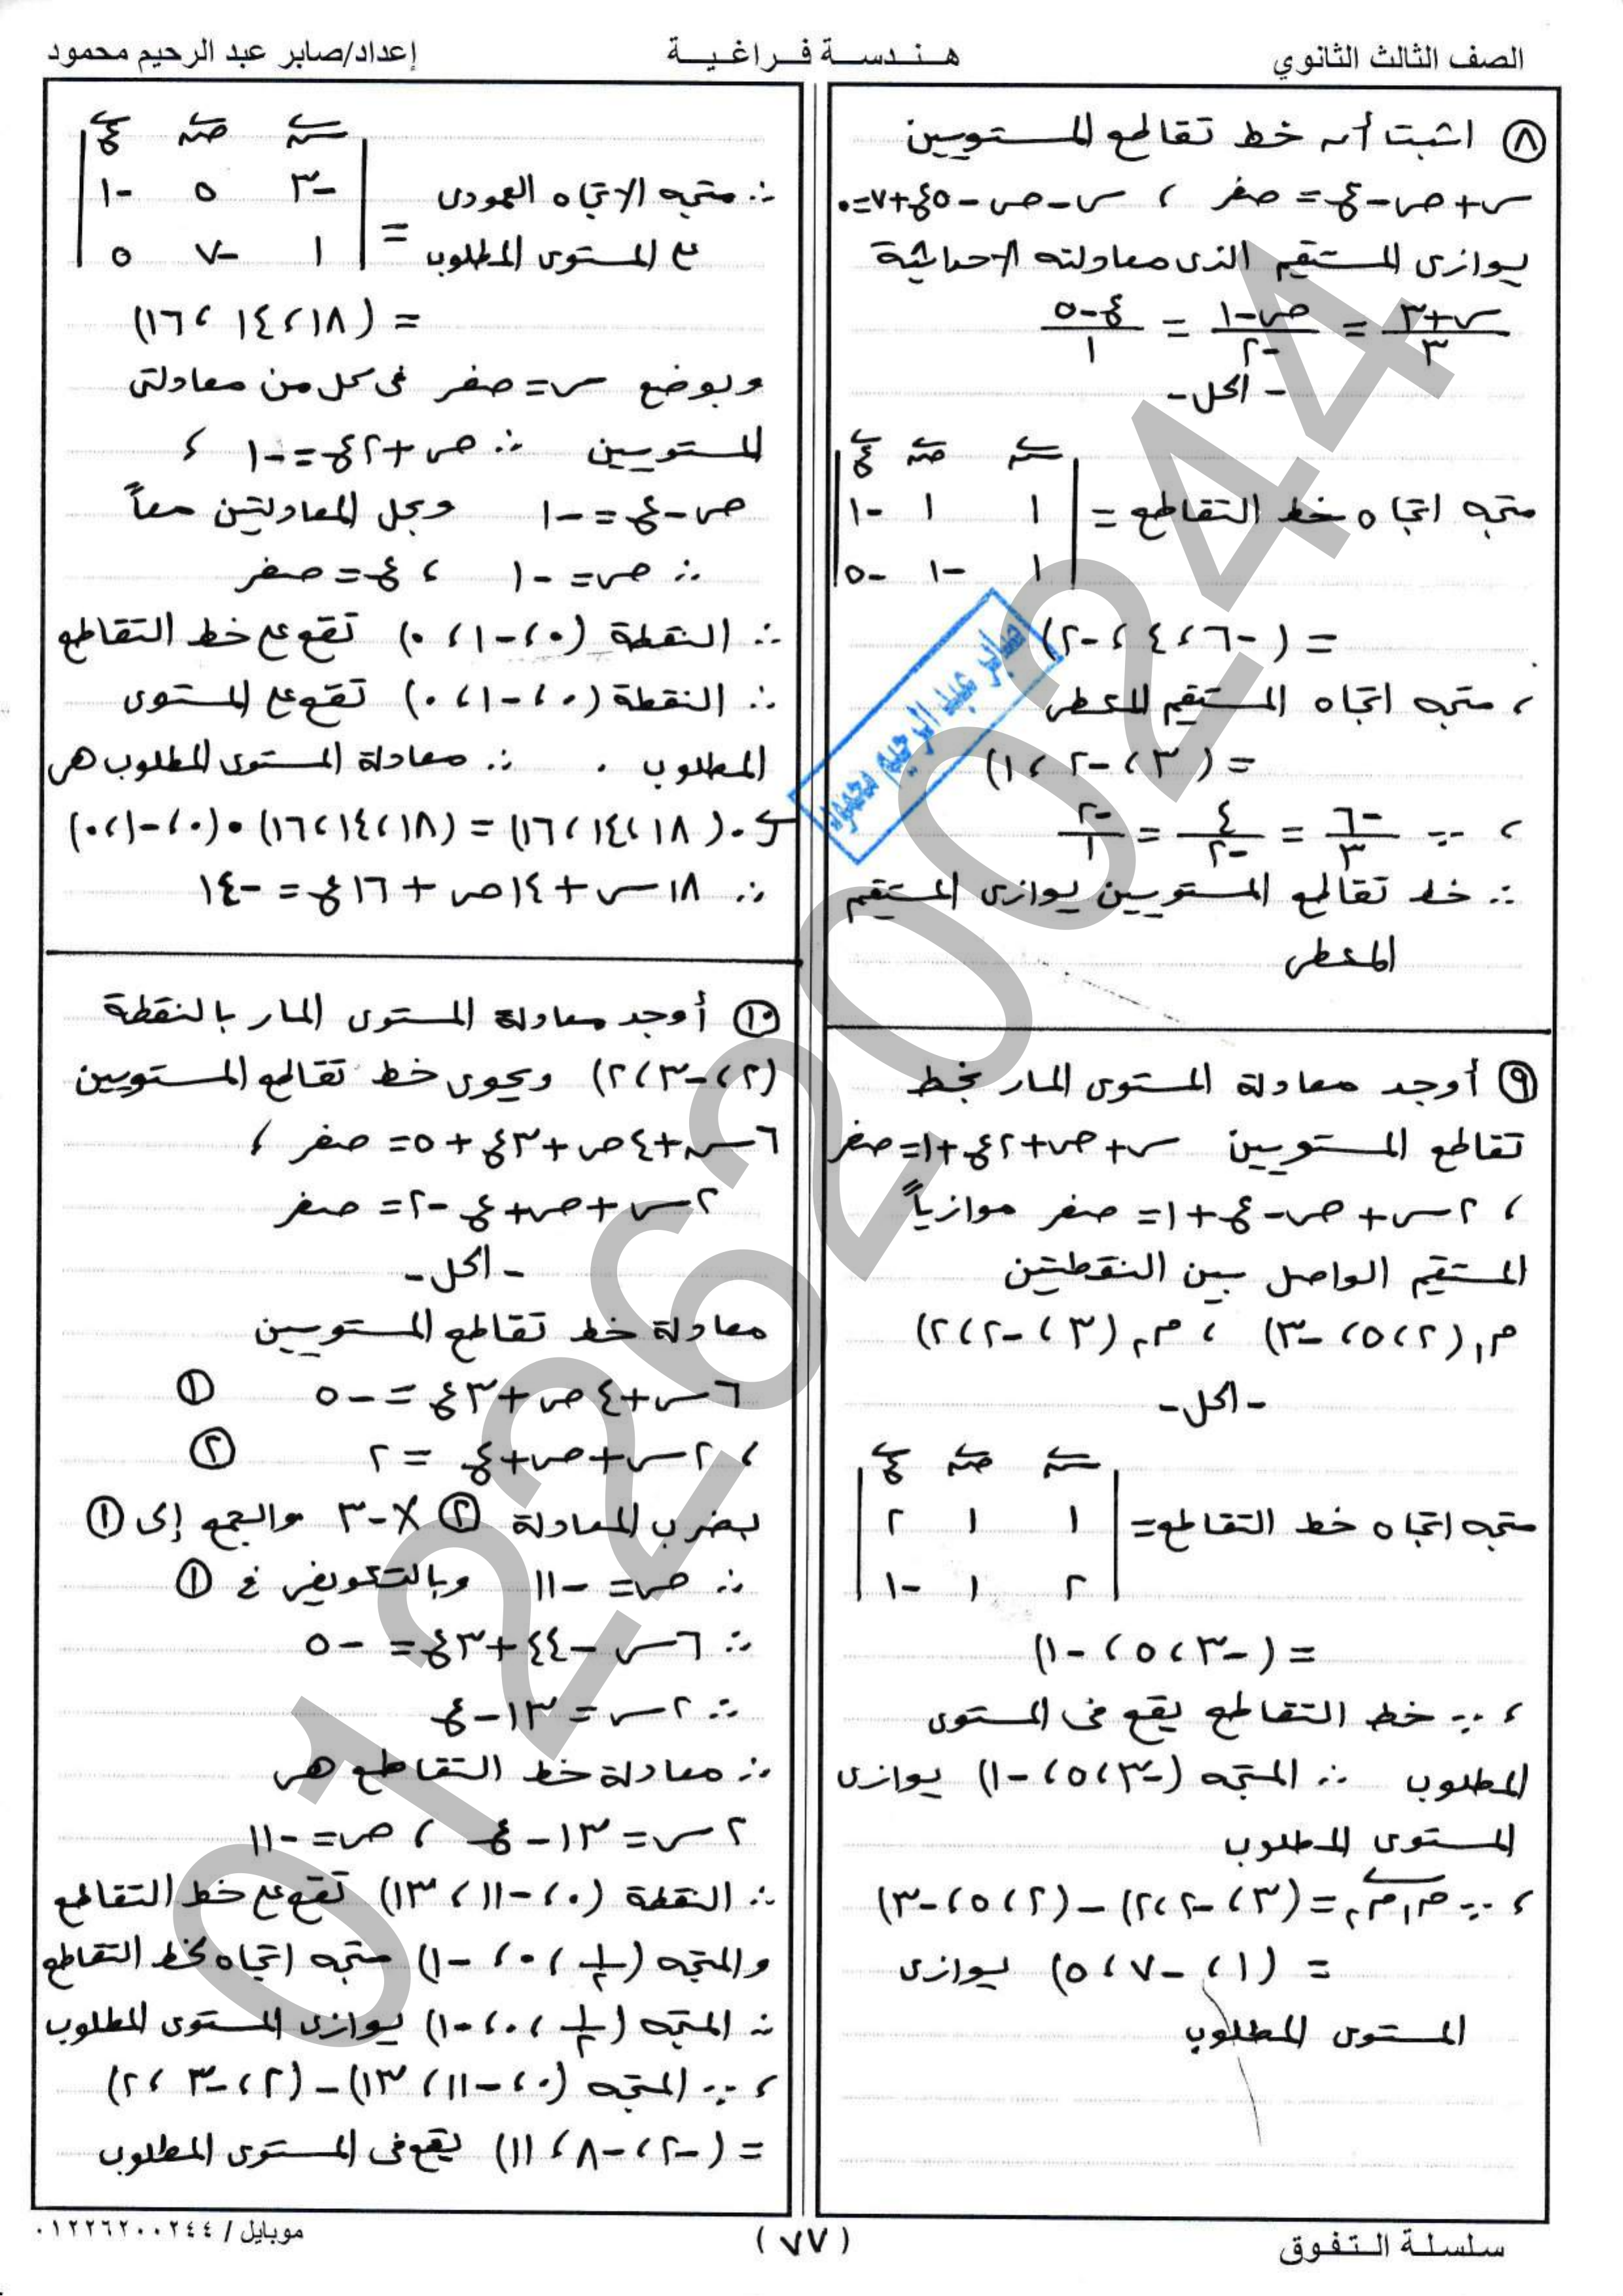 الصف الثالث الثانوي
هندسة فراغية
إعداد/صابر عبد الرحيم محمود
٨ اثبت أن خط تقاطع المستويين
س+ص-ع=صفر ، س-ص-٥ع+٧=٠
يوازى المستقيم الذى معادلته الاحداثية
س+٣/٣ = ص-١/-٢ = ع-٥/١
- الحل -
س ص ع
متجه اتجاه خط التقاطع = | ١ ١ -١ |
| ١ -١ -٥ |
= (-٦ ، ٤ ، -٢)
، متجه اتجاه المستقيم المعطى
= (٣ ، -٢ ، ١)
، ∵ -٦/٣ = ٤/-٢ = -٢/١
∴ خط تقاطع المستويين يوازى المستقيم
المعطى
٩ أوجد معادلة المستوى المار بخط
تقاطع المستويين س+ص+٢ع+١=صفر
، ٢س+ص-ع+١=صفر موازياً
المستقيم الواصل بين النقطتين
م١(٢ ، ٥ ، -٣) ، م٢(٣ ، -٢ ، ٢)
- الحل -
س ص ع
متجه اتجاه خط التقاطع = | ١ ١ ٢ |
| ٢ ١ -١ |
= (-٣ ، ٥ ، -١)
، ∵ خط التقاطع يقع فى المستوى
المطلوب ∴ المتجه (-٣ ، ٥ ، -١) يوازى
المستوى المطلوب
، ∵ م١م٢ = (٣ ، -٢ ، ٢) - (٢ ، ٥ ، -٣)
= (١ ، -٧ ، ٥) يوازى
المستوى المطلوب
س ص ع
∴ متجه الاتجاه العمودى | -٣ ٥ -١ |
على المستوى المطلوب = | ١ -٧ ٥ |
= (١٨ ، ١٤ ، ١٦)
وبوضع س=صفر فى كل من معادلتى
المستويين ∴ ص+٢ع=-١ ،
ص-ع=-١ وبحل المعادلتين معاً
∴ ص=-١ ، ع=صفر
∴ النقطة (٠ ، -١ ، ٠) تقع على خط التقاطع
∴ النقطة (٠ ، -١ ، ٠) تقع على المستوى
المطلوب . ∴ معادلة المستوى المطلوب هى
ر . (١٨ ، ١٤ ، ١٦) = (١٨ ، ١٤ ، ١٦) . (٠ ، -١ ، ٠)
∴ ١٨س + ١٤ص + ١٦ع = -١٤
١٠ أوجد معادلة المستوى المار بالنقطة
(٢ ، -٣ ، ٢) ويحوى خط تقاطع المستويين
٦س+٤ص+٣ع+٥=صفر ،
٢س+ص+ع-٢=صفر
- الحل -
معادلة خط تقاطع المستويين
٦س+٤ص+٣ع = -٥ ①
، ٢س+ص+ع = ٢ ②
بضرب المعادلة ② × -٣ والجمع إلى ①
∴ ص = -١١ وبالتعويض فى ①
∴ ٦س - ٤٤ + ٣ع = -٥
∴ ٢س = ١٣ - ع
∴ معادلة خط التقاطع هى
٢س = ١٣ - ع ، ص = -١١
∴ النقطة (٠ ، -١١ ، ١٣) تقع على خط التقاطع
والمتجه (١/٢ ، ٠ ، -١) متجه اتجاه لخط التقاطع
∴ المتجه (١/٢ ، ٠ ، -١) يوازى المستوى المطلوب
، ∵ المتجه (٠ ، -١١ ، ١٣) - (٢ ، -٣ ، ٢)
= (-٢ ، -٨ ، ١١) يقع فى المستوى المطلوب
صابر عبد الرحيم محمود
01226200244
سلسلة التفوق
(٧٧)
موبايل / ٠١٢٢٦٢٠٠٢٤٤